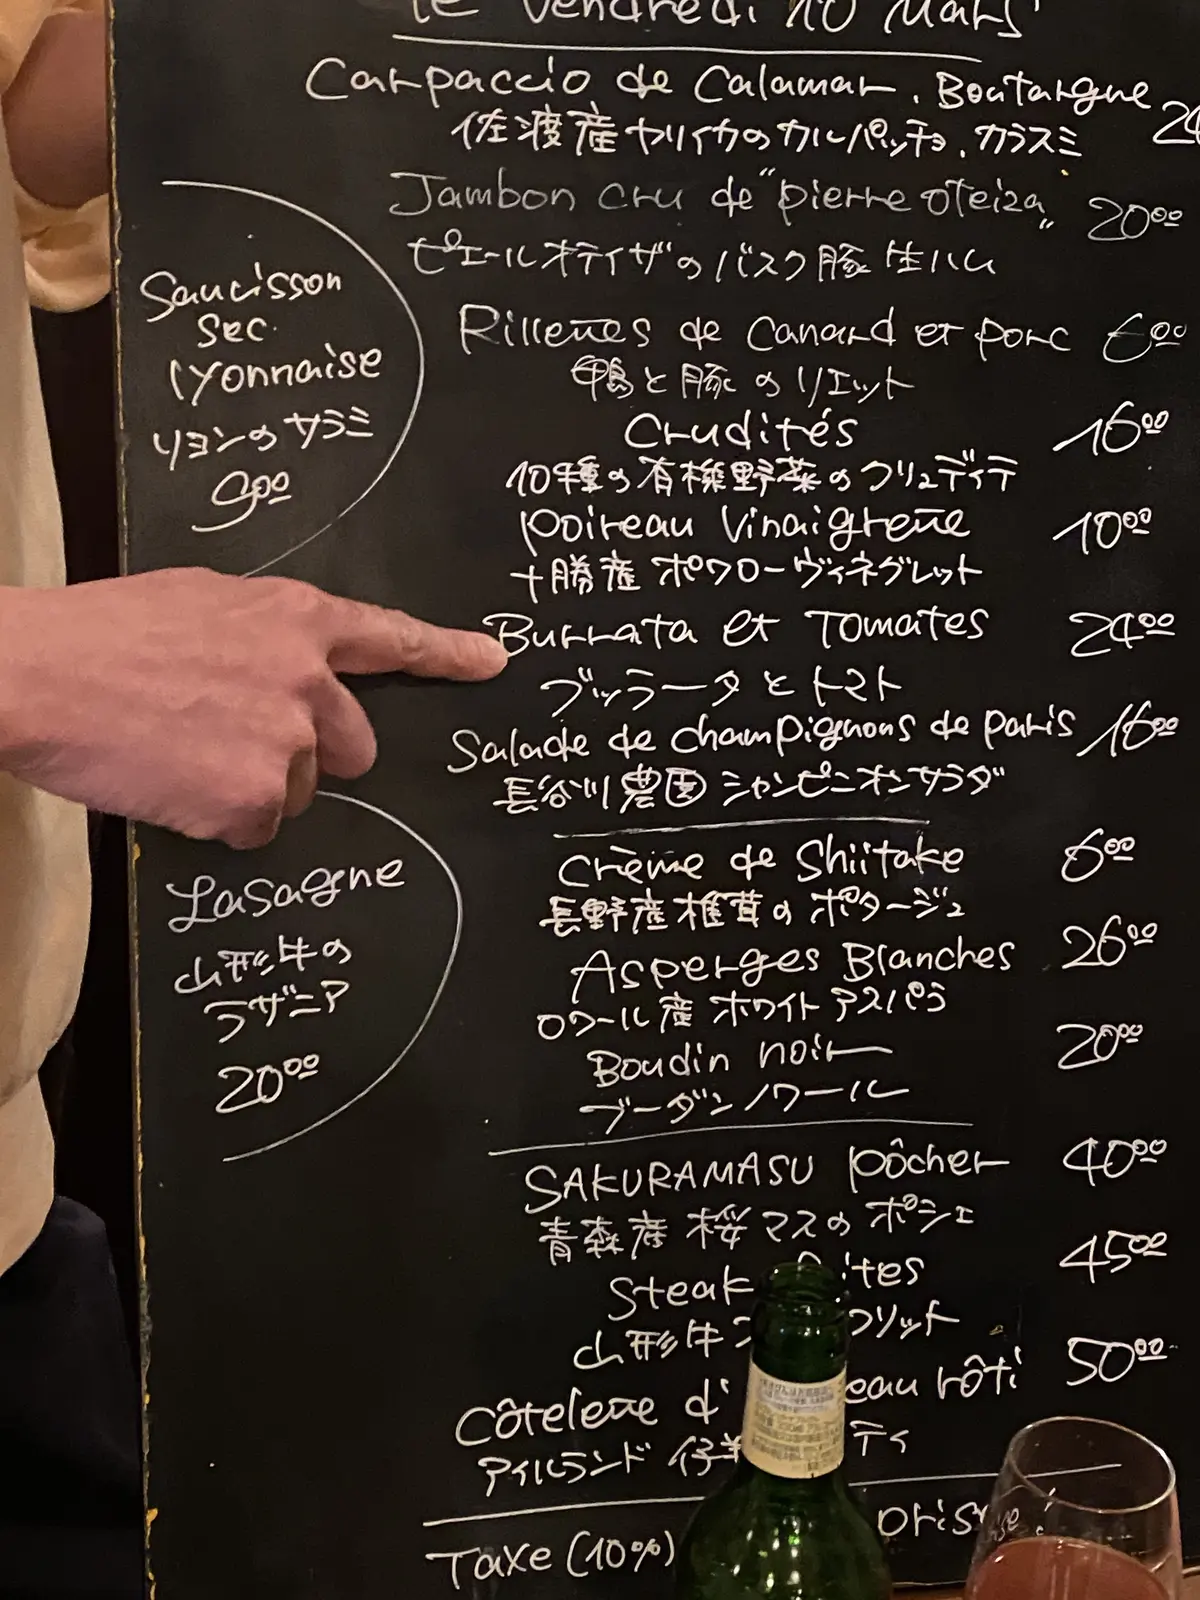 le Vendredi 10 Mars
Carpaccio de Calamar, Boutargne
佐渡産ヤリイカのカルパッチョ、カラスミ
Jambon cru de "pierre oteiza" 20⁰⁰
ピエールオテイザのバスク豚 生ハム
Saucisson
sec
lyonnaise
リヨンのサラミ
9⁰⁰
Rillettes de Canard et porc 6⁰⁰
鴨と豚のリエット
Crudités 16⁰⁰
10種の有機野菜のクリュディテ
poireau Vinaigrette 10⁰⁰
十勝産 ポワローヴィネグレット
Burrata et Tomates 24⁰⁰
ブッラータとトマト
Salade de champignons de paris 16⁰⁰
長谷川農園 シャンピニオンサラダ
Crème de Shiitake 6⁰⁰
長野産椎茸のポタージュ
Lasagne
山形牛の
ラザニア
20⁰⁰
Asperges Blanches 26⁰⁰
ロワール産 ホワイトアスパラ
Boudin noir 20⁰⁰
ブーダンノワール
SAKURAMASU pôcher 40⁰⁰
青森産 桜マスのポシェ
Steak ites 45⁰⁰
山形牛 フリット
Côtelette d' eau rôti 50⁰⁰
アイルランド 仔羊 ティ
Taxe (10%)